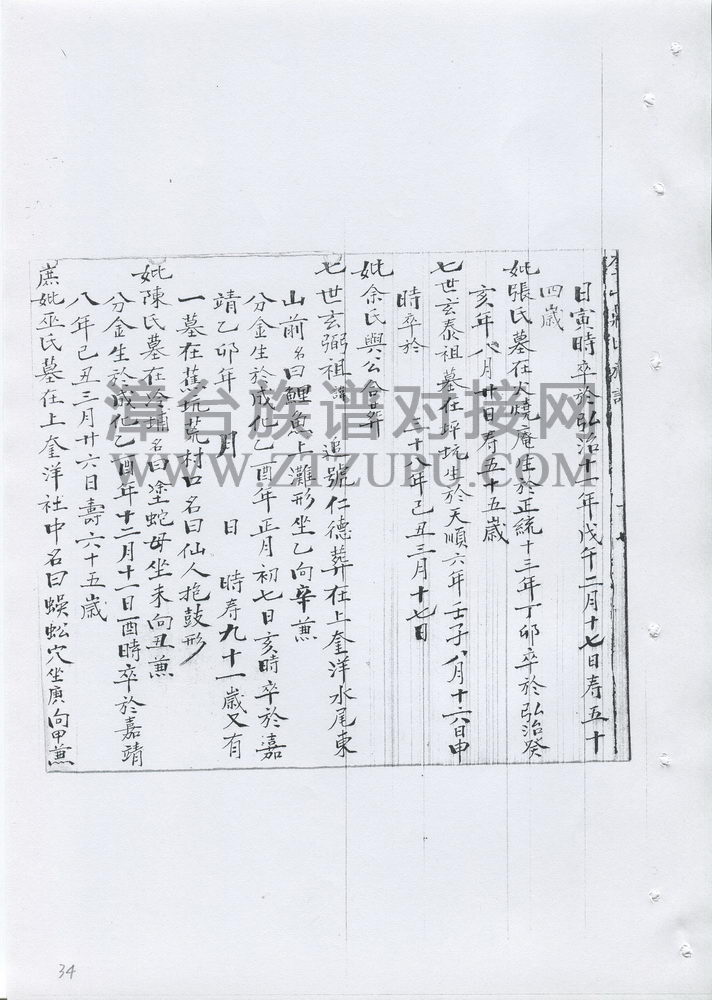 日寅時卒於弘治十一年戊午二月十七日寿五十
四歲
妣張氏墓在火燒庵生於正統十三年丁卯卒於弘治癸
亥年八月廿日寿五十五歲
七世玄泰祖墓在坪坑生於天順六年壬子八月十六日申
時卒於 三十八年己丑三月十七日
妣余氏與公合葬
七世玄弼祖 號仁德葬在上奎洋水尾東
山前名曰鯉魚上灘形坐乙向辛兼
分金生於成化乙酉年正月初七日亥時卒於嘉
靖乙卯年 月 日 時寿九十一歲又有
一墓在蕉坑荒村口名曰仙人抱鼓形
妣陳氏墓在 名曰塗蛇母坐未向丑兼
分金生於成化乙酉年十二月十一日酉時卒於嘉靖
八年己丑三月廿六日壽六十五歲
庶妣巫氏墓在上奎洋社中名曰蜈蚣穴坐庚向甲兼
漳台族谱对接网
WWW.ZTZUPU.COM
34